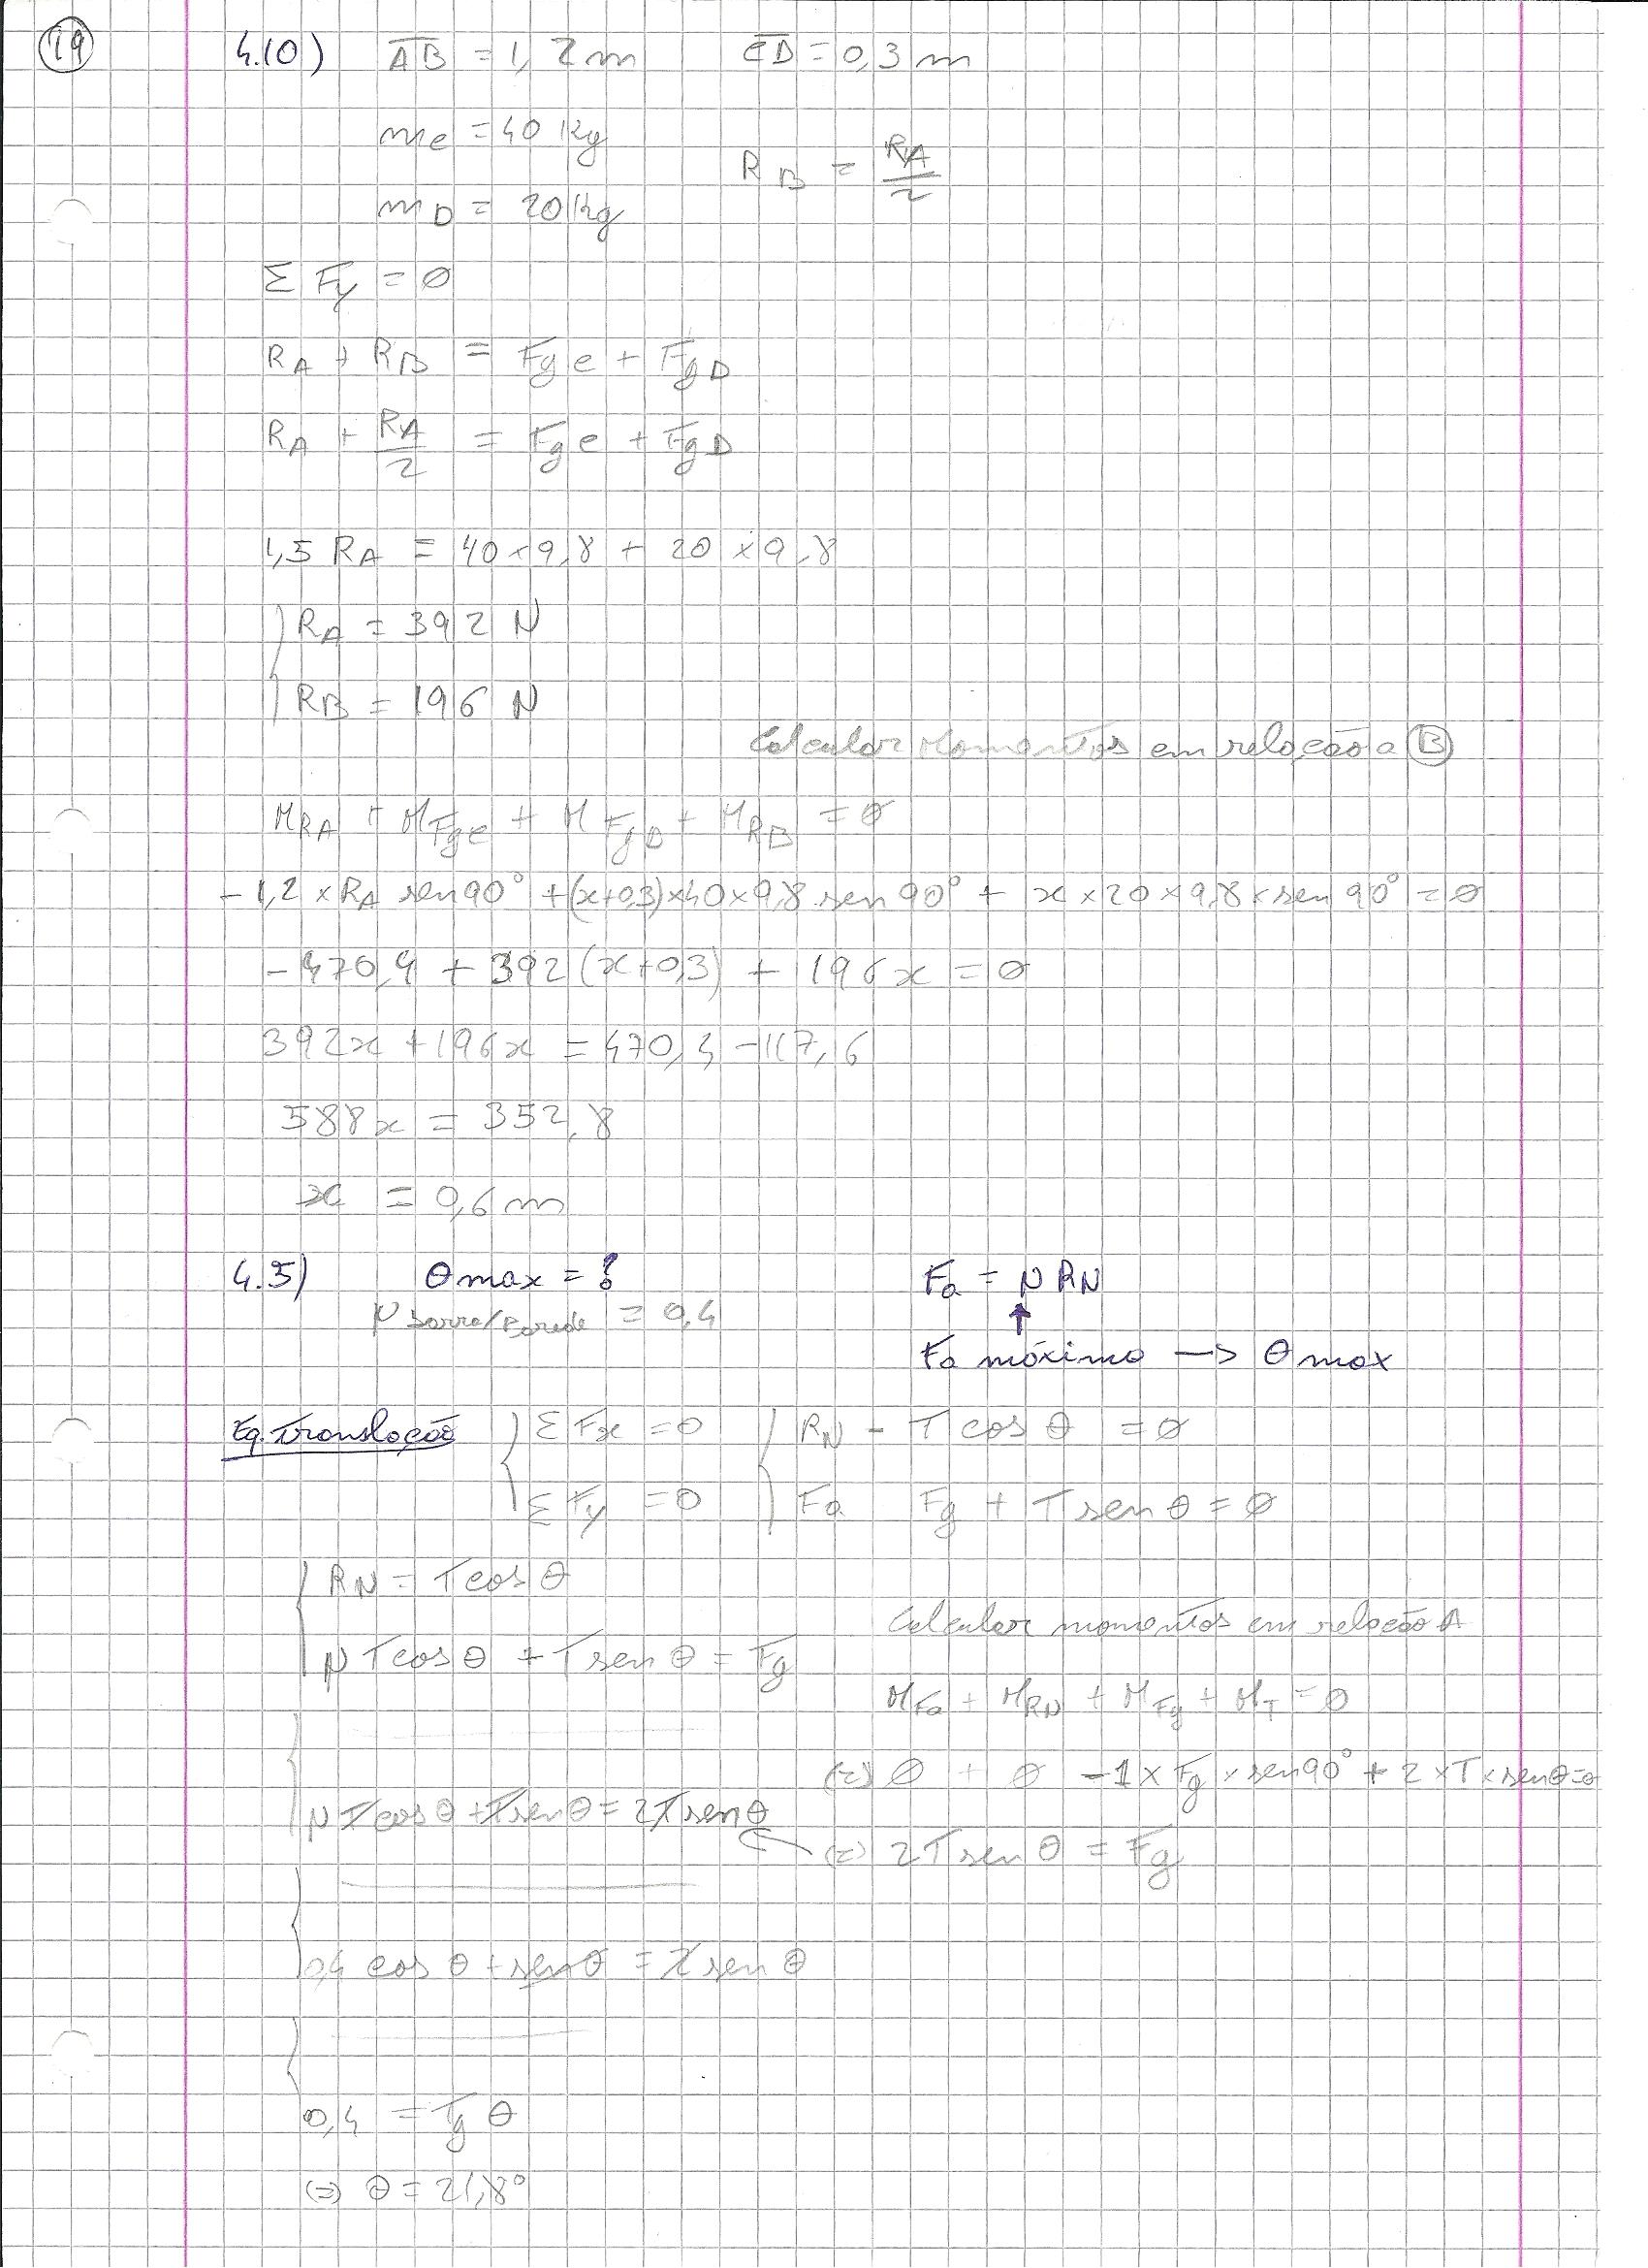 19
4.10) AB = 1,2 m CD = 0,3 m
mc = 40 Kg
RB = RA/2
mD = 20 Kg
Σ Fy = 0
RA + RB = Fgc + FgD
RA + RA/2 = Fgc + FgD
1,5 RA = 40 × 9,8 + 20 × 9,8
RA = 392 N
RB = 196 N
Calcular Momentos em relação a B
MRA + MFgc + MFgD + MRB = 0
- 1,2 × RA sen 90° + (x+0,3) × 40 × 9,8 sen 90° + x × 20 × 9,8 × sen 90° = 0
- 470,4 + 392 (x+0,3) + 196x = 0
392x + 196x = 470,4 - 117,6
588x = 352,8
x = 0,6 m
4.5) θmax = ? Fa = μ RN
μ barra/Parede = 0,4 ↑
Fa máximo —> θmax
Eq. Translação { Σ Fx = 0 { RN - T cos θ = 0
Σ Fy = 0 Fa Fg + T sen θ = 0
{ RN = T cos θ
Calcular momentos em relação A
μ T cos θ + T sen θ = Fg
MFa + MRN + MFg + MT = 0
(=) 0 + 0 - 1 × Fg × sen 90° + 2 × T × sen θ = 0
μ T cos θ + T sen θ = 2 T sen θ
(=) 2 T sen θ = Fg
0,4 cos θ + sen θ = 2 sen θ
0,4 = Tg θ
(=) θ = 21,8°